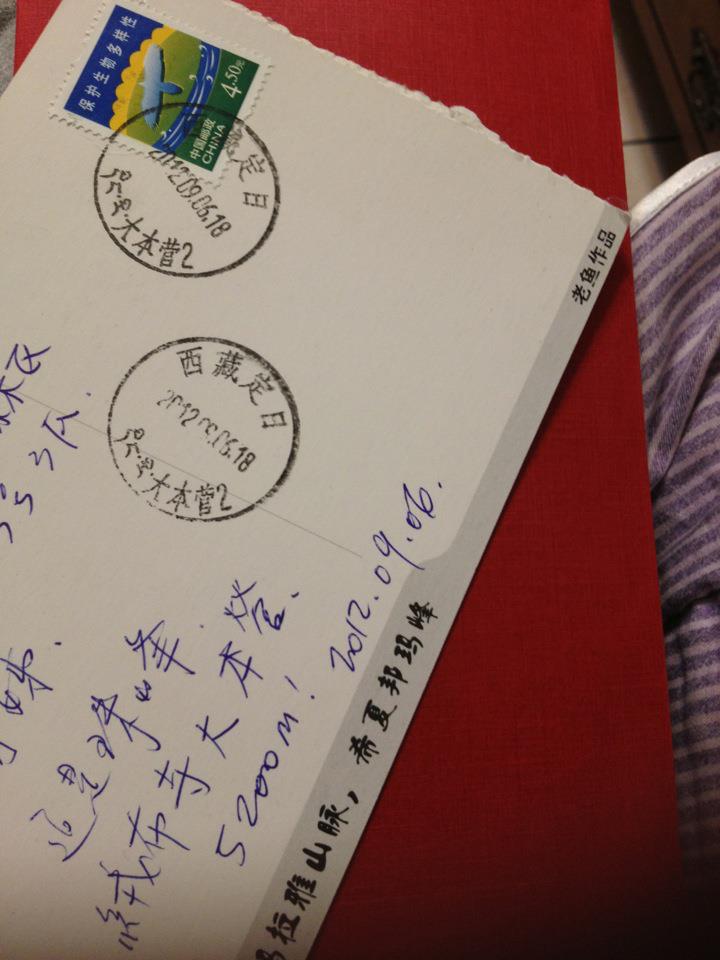 保护生物多样性
4.50元
中国邮政
CHINA
定日
2012.09.06.18
大本营2
西藏定日
2012.09.06.18
大本营2
珠峰
絨布寺大本營.
5200m! 2012.09.06.
老鱼作品
拉雅山脉，希夏邦玛峰